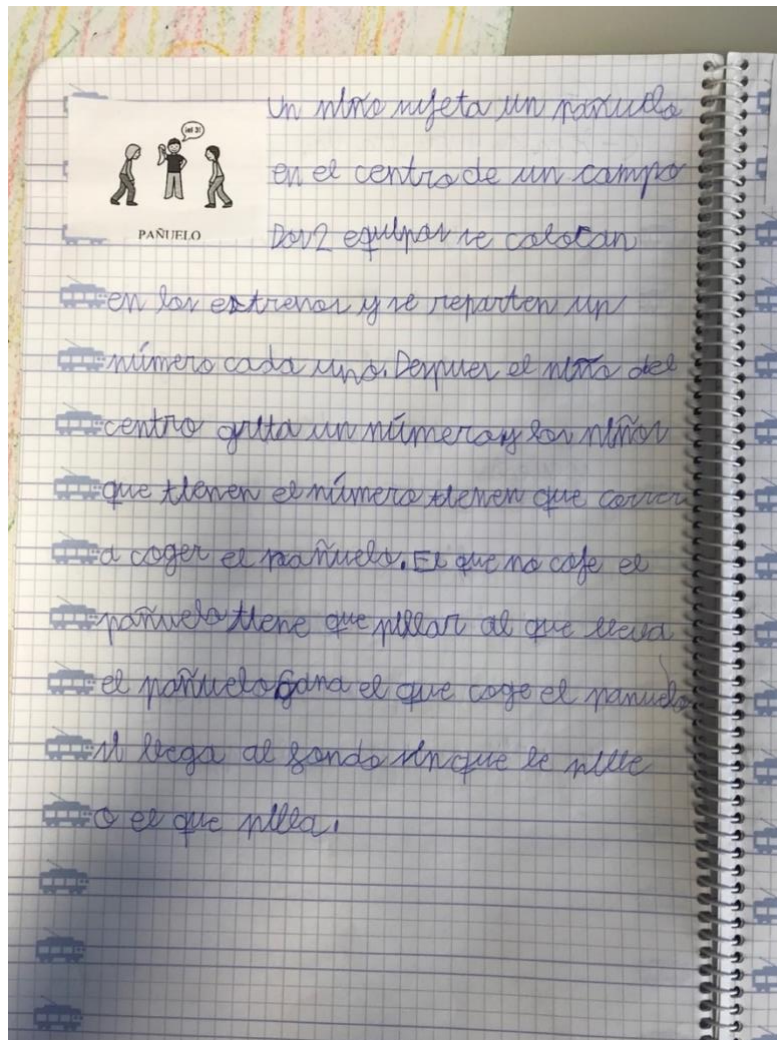 ¡el 3!
PAÑUELO
Un niño sujeta un pañuelo
en el centro de un campo
Dos 2 equipos se colocan
en los extremos y se reparten un
número cada uno. Despues el niño del
centro grita un número y los niños
que tienen el número tienen que correr
a coger el pañuelo. El que no coje el
pañuelo tiene que pillar al que lleva
el pañuelo Gana el que coge el panuelo
si llega al fondo sin que le pille
o el que pilla.